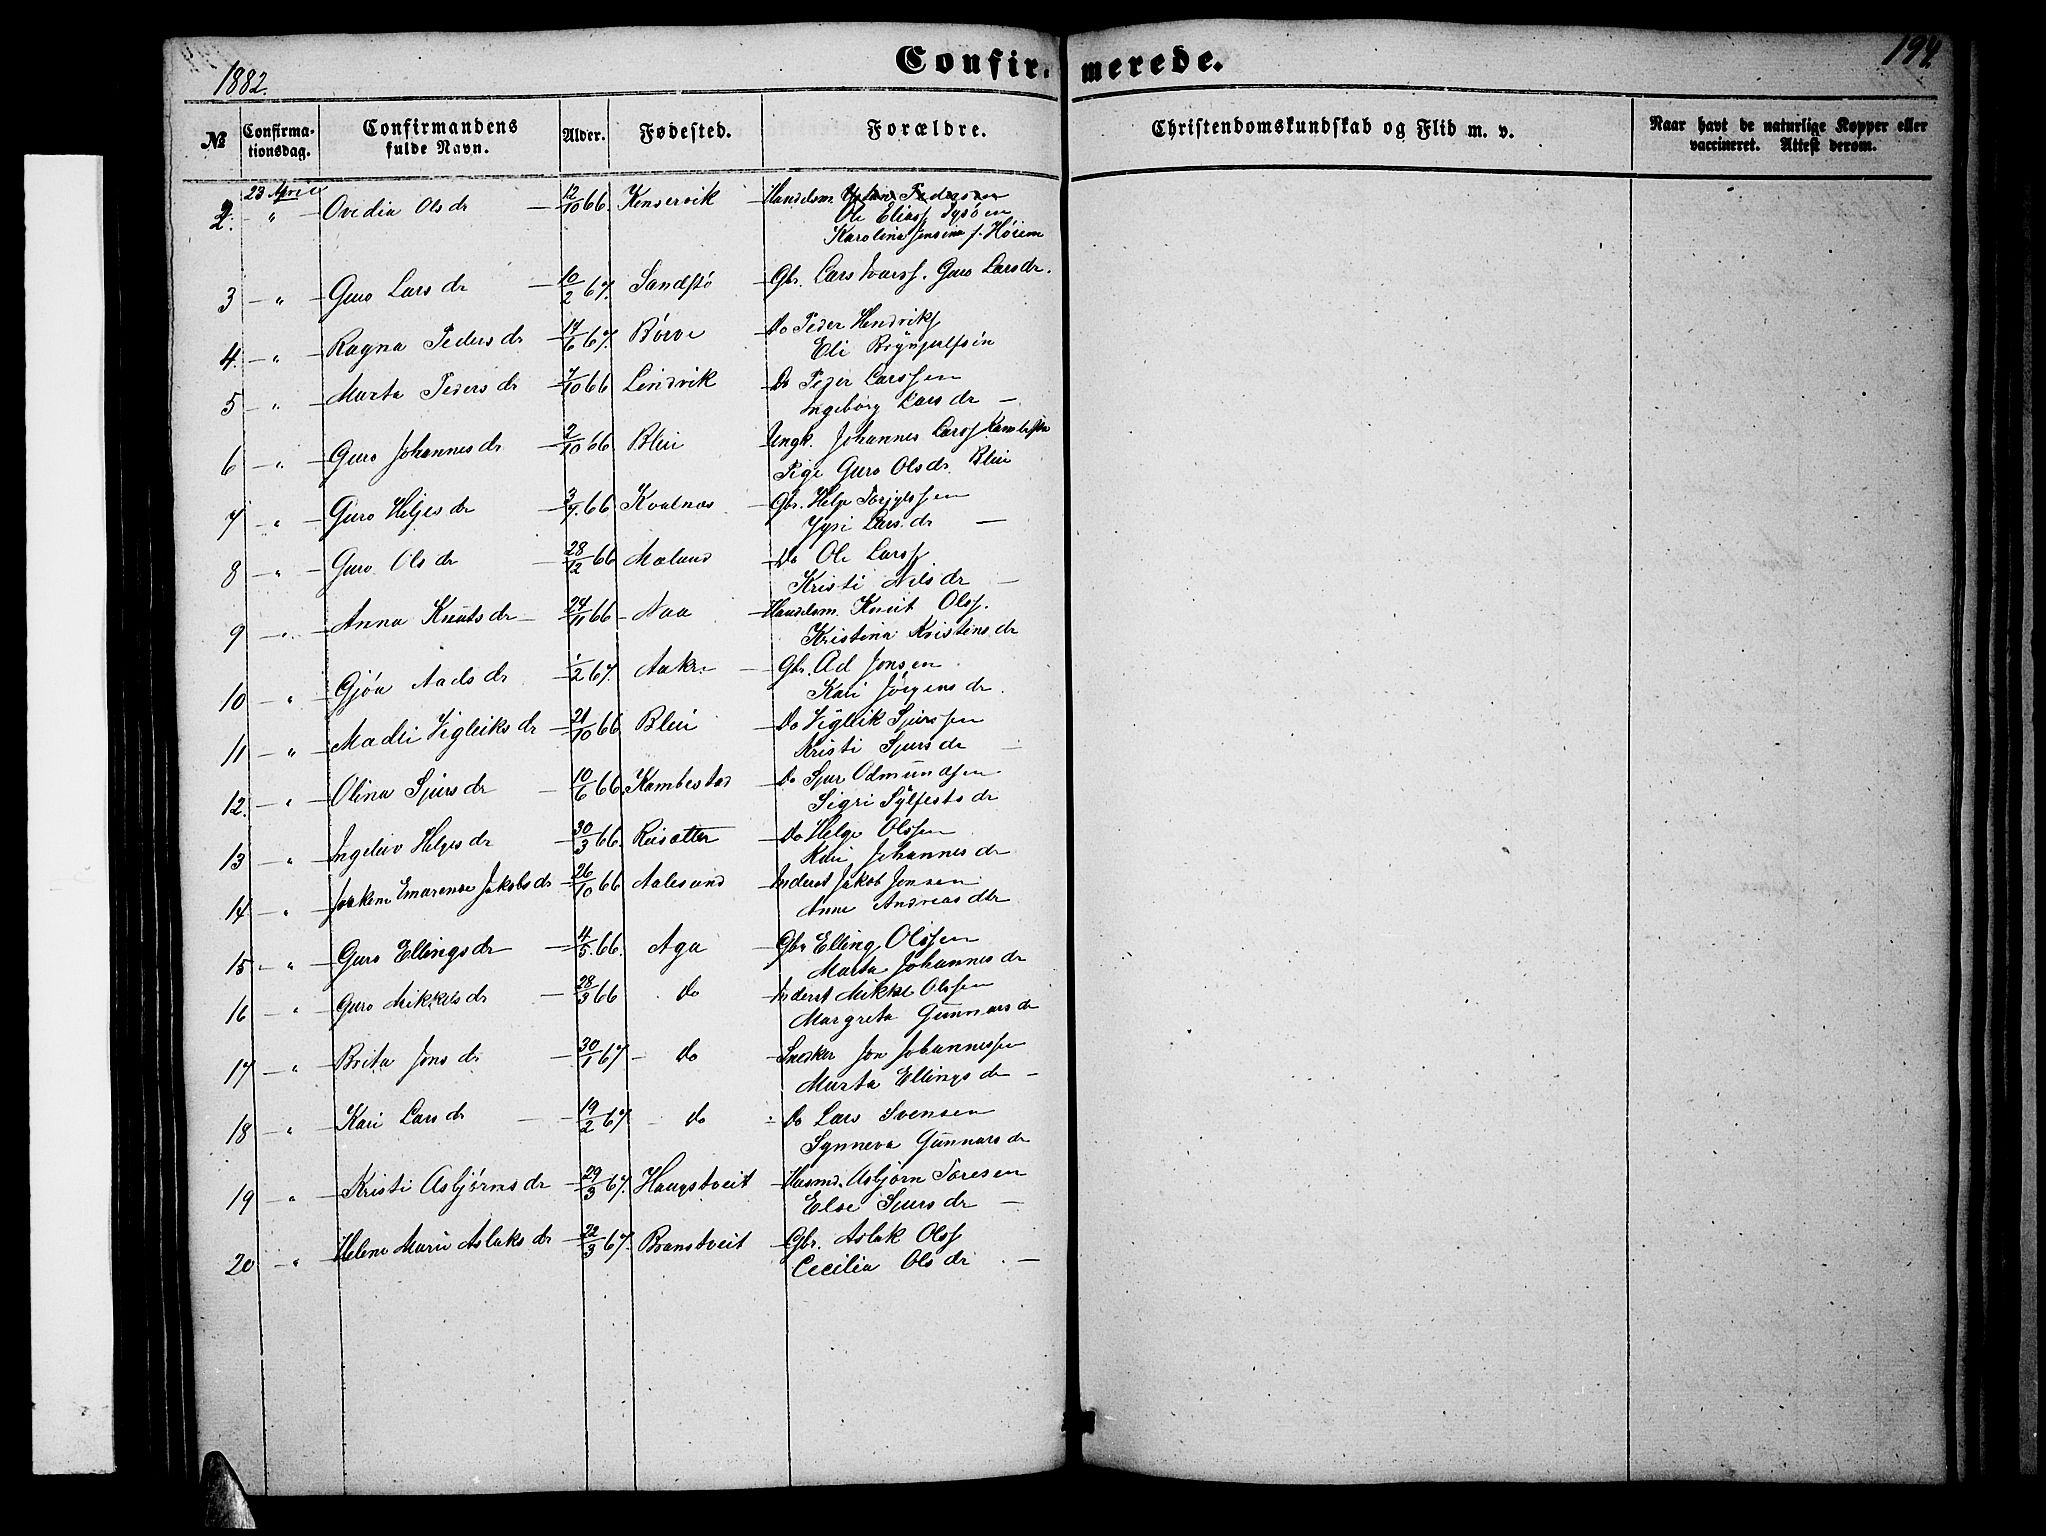 1882.
Confirmerede.
194.
№
Confirmationsdag.
Confirmandens fulde Navn.
Alder.
Fødested.
Forældre.
Christendomskundskab og Flid m. v.
Naar havt de naturlige Kopper eller vaccineret. Attest derom.
23 April
2. " Ovedia Olsdr 12/10 66. Kinservik Handelsm.
Ole Eliass Tysøen
Karolina Jensina f. Høiem
3 " Guro Larsdr 10/2 67. Sandstø Gbr. Lars Ivarss. Guro Larsdr.
4. " Ragna Pedersdr 14/6 67. Børve Do Peder Hendriks
Eli Brynjulfsdr
5 " Marta Pedersdr 7/10 66 Lindvik Do Peder Larssen
Ingeborg Larsdr
6 " Guro Johannesdr 2/10 66 Bleie Ungk. Johannes Larss Kambestø
Pige Guro Olsdr. Bleie
7 " Guro Heljesdr 3/7. 66 Kvalnæs Gbr. Helje Torgilssen
Larsdr
8 " Guro Olsdr 28/12 66 Maland Do Ole Larss
Kristi Nilsdr
9 " Anna Knutsdr 24/11 66 Naa Handelsm. Knut Olss.
Kristina Kristensdr
10 " Gjøa Aadsdr 1/2 67. Aakre Gbr. Ad Jonsen
Kari Jørgensdr.
11 " Madli Vigleiksdr 21/10 66 Bleie Do Vigleik Sjurssen
Kristi Sjursdr
12. " Olina Sjursdr 10/6 66. Kambestad Do Sjur Odmundsen
Sigri Sylfestsdr
13 " Ingeleiv Helgesdr 30/3 66. Reisæter Do Helge Olssen
Kari Johannesdr
14 " Joakime Emarense Jakobsdr 26/10 66 Aalesund Inderst Jakob Jensen
Anne Andreasdtr
15 " Guro Ellingsdr 4/5. 66. Aga Gbr Elling Olssen
Marta Johannesdr
16 " Guro Mikkelsdr 28/3 66 do Inderst Mikkel Olssen
Margreta Gunnarsdr
17 " Brita Jonsdr 30/1 67 do Snedker Jon Johannessen
Marta Ellingsdr
18 " Kari Larsdr 19/2 67. do Do Lars Svensen
Synneva Gunnarsdr
19 " Kristi Asbjørnsdr 29/3 67. Haugstveit Husmd. Asbjørn Toresen
Else Sjursdr
20 " Helene Marie Aslaksdr 22/3 67. Branstveit Gbr. Aslak Olss
Cecilia Olsdr